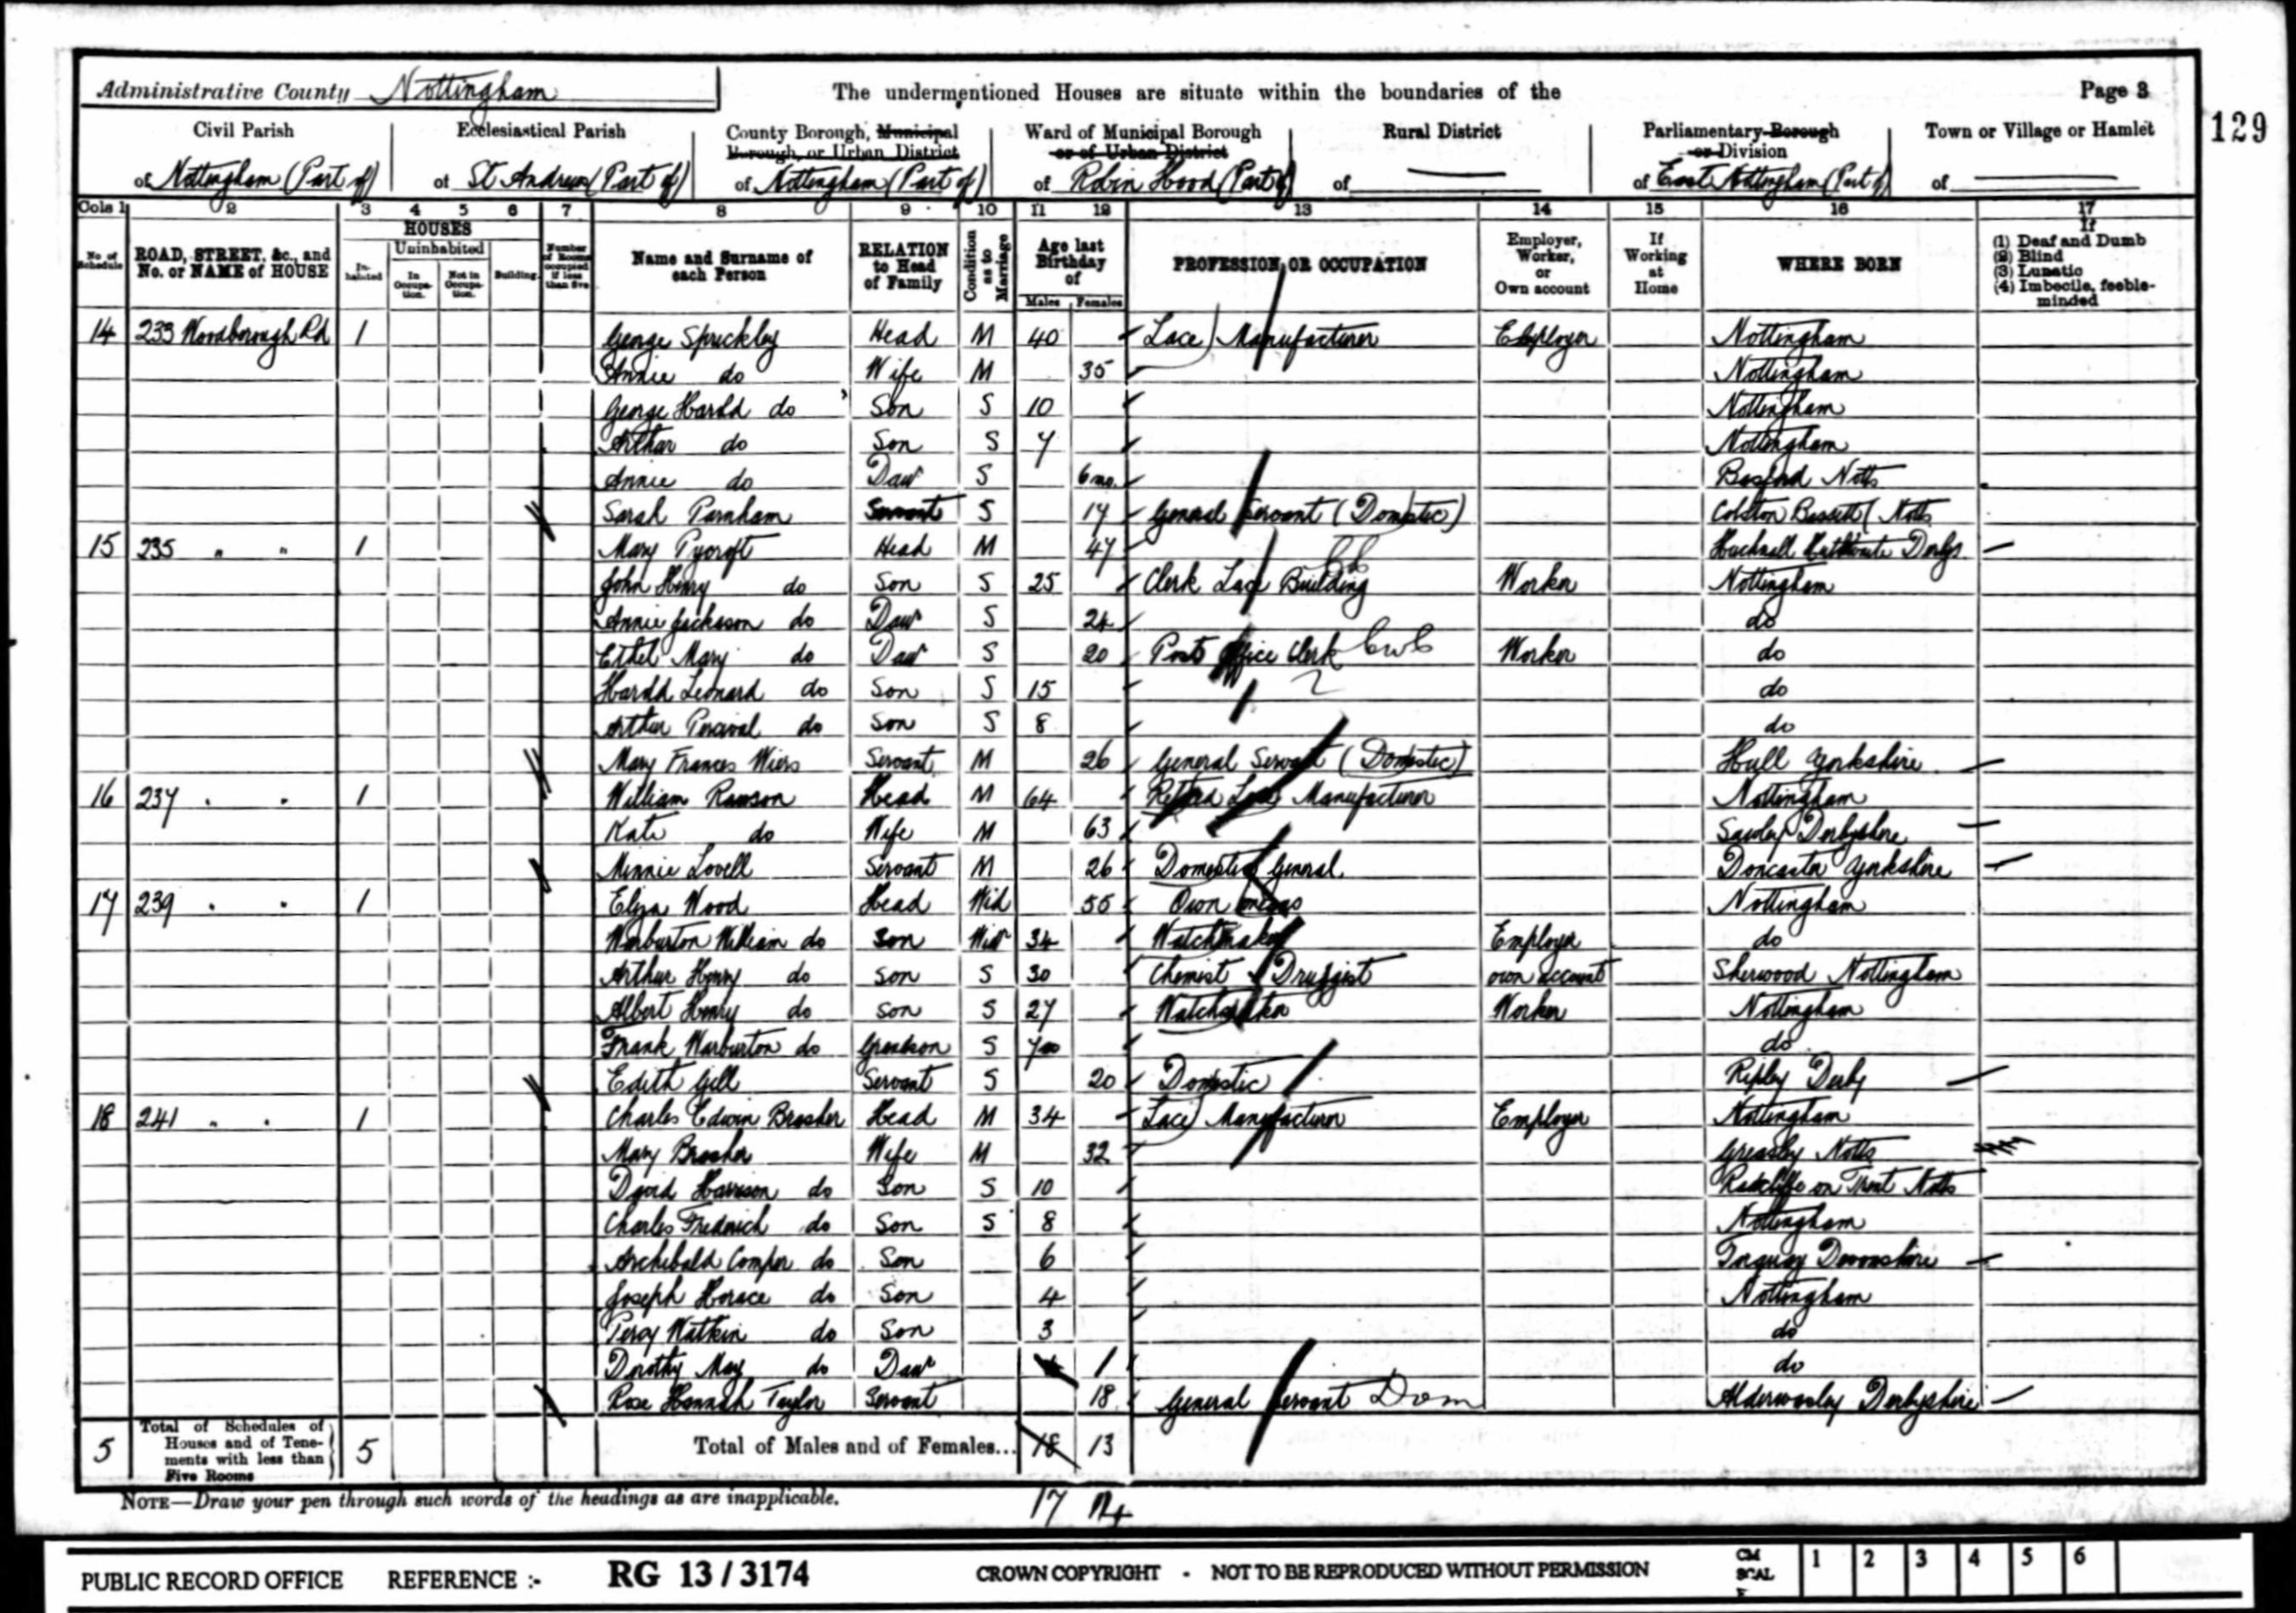 Administrative County Nottingham
The undermentioned Houses are situate within the boundaries of the
Page 3
129
Civil Parish
of Nottingham (Part of)
Ecclesiastical Parish
of St Andrew (Part of)
County Borough, Municipal Borough, or Urban District
of Nottingham (Part of)
Ward of Municipal Borough or of Urban District
of Robin Hood (Part of)
Rural District
of
Parliamentary Borough or Division
of East Nottingham (Part of)
Town or Village or Hamlet
of
Cols 1 2 3 4 5 6 7 8 9 10 11 12 13 14 15 16 17
No. of Schedule
ROAD, STREET, &c., and No. or NAME of HOUSE
HOUSES
Inhabited
Uninhabited
In Occupation.
Not in Occupation.
Building.
Number of Rooms occupied if less than five
Name and Surname of each Person
RELATION to Head of Family
Condition as to Marriage
Age last Birthday of
Males Females
PROFESSION OR OCCUPATION
Employer, Worker, or Own account
If Working at Home
WHERE BORN
If
(1) Deaf and Dumb
(2) Blind
(3) Lunatic
(4) Imbecile, feeble-minded
14 233 Woodborough Rd 1 George Spreckley Head M 40 Lace Manufacturer Employer Nottingham
Annie do Wife M 35 Nottingham
George Harold do Son S 10 Nottingham
Arthur do Son S 7 Nottingham
Annie do Daur S 6 mo. Basford Notts
Sarah Parnham Servant S 17 General Servant (Domestic) Colston Bassett Notts
15 235 " " 1 Mary Pycroft Head M 47 Hucknall Huthwaite Derbys.
John Henry do Son S 25 Clerk Lace Building Worker Nottingham
Annie Jackson do Daur S 24 do
Ethel Mary do Daur S 20 Post Office Clerk Worker do
Harold Leonard do Son S 15 do
Arthur Percival do Son S 8 do
Mary Frances Wiers Servant M 26 General Servant (Domestic) Hull Yorkshire
16 237 " " 1 William Rawson Head M 64 Retired Lace Manufacturer Nottingham
Kate do Wife M 63 Sawley Derbyshire
Minnie Lovell Servant M 26 Domestic General. Doncaster Yorkshire
17 239 " " 1 Eliza Wood Head Wid 55 Own means Nottingham
Warburton William do Son Widr 34 Watchmaker Employer do
Arthur Henry do Son S 30 Chemist & Druggist own account Sherwood Nottingham
Albert Henry do Son S 27 Watchmaker Worker Nottingham
Frank Warburton do Grandson S 7 do
Edith Gell Servant S 20 Domestic Ripley Derby
18 241 " " 1 Charles Edwin Brasher Head M 34 Lace Manufacturer Employer Nottingham
Mary Brasher Wife M 32 Greasley Notts
David Harrison do Son S 10 Radcliffe on Trent Notts
Charles Frederick do Son S 8 Nottingham
Archibald Comper do Son 6 Torquay Devonshire
Joseph Horace do Son 4 Nottingham
Percy Watkin do Son 3 do
Dorothy May do Daur 1 do
Rose Hannah Taylor Servant 18 General Servant Dom Alderwasley Derbyshire
5 Total of Schedules of Houses and of Tenements with less than Five Rooms 5 Total of Males and of Females... 18 13
17 14
NOTE—Draw your pen through such words of the headings as are inapplicable.
PUBLIC RECORD OFFICE REFERENCE :- RG 13 / 3174 CROWN COPYRIGHT - NOT TO BE REPRODUCED WITHOUT PERMISSION
CM 1 2 3 4 5 6